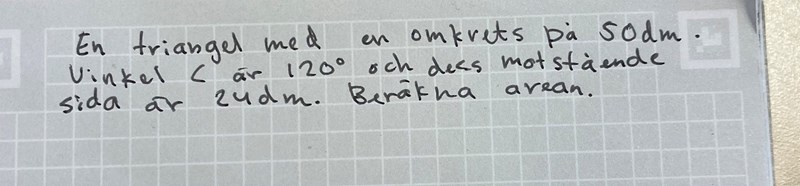 En triangel med en omkrets på 50dm.
Vinkel C är 120° och dess motstående
sida är 24dm. Beräkna arean.